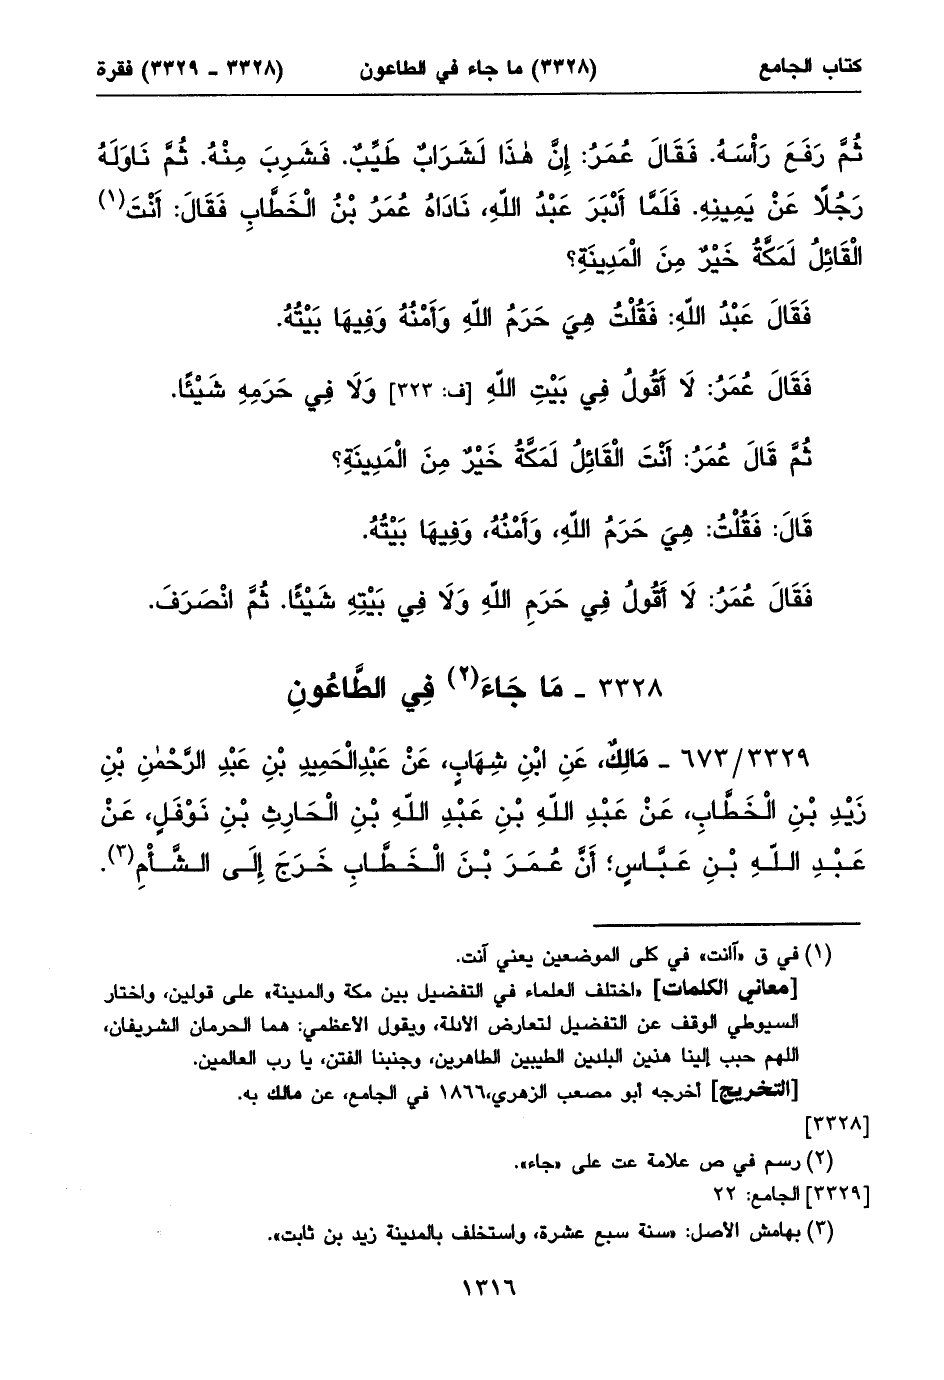 كتاب الجامع (٣٣٢٨) ما جاء في الطاعون (٣٣٢٨ - ٣٣٢٩) فقرة
ثُمَّ رَفَعَ رَأْسَهُ. فَقَالَ عُمَرُ: إِنَّ هٰذَا لَشَرَابٌ طَيِّبٌ. فَشَرِبَ مِنْهُ. ثُمَّ نَاوَلَهُ
رَجُلًا عَنْ يَمِينِهِ. فَلَمَّا أَدْبَرَ عَبْدُ اللّهِ، نَادَاهُ عُمَرُ بْنُ الْخَطَّابِ فَقَالَ: أَنْتَ(١)
الْقَائِلُ لَمَكَّةُ خَيْرٌ مِنَ الْمَدِينَةِ؟
فَقَالَ عَبْدُ اللّهِ: فَقُلْتُ هِيَ حَرَمُ اللّهِ وَأَمْنُهُ وَفِيهَا بَيْتُهُ.
فَقَالَ عُمَرُ: لَا أَقُولُ فِي بَيْتِ اللّهِ [ف: ٣٢٣] وَلَا فِي حَرَمِهِ شَيْئًا.
ثُمَّ قَالَ عُمَرُ: أَنْتَ الْقَائِلُ لَمَكَّةُ خَيْرٌ مِنَ الْمَدِينَةِ؟
قَالَ: فَقُلْتُ: هِيَ حَرَمُ اللّهِ، وَأَمْنُهُ، وَفِيهَا بَيْتُهُ.
فَقَالَ عُمَرُ: لَا أَقُولُ فِي حَرَمِ اللّهِ وَلَا فِي بَيْتِهِ شَيْئًا. ثُمَّ انْصَرَفَ.
٣٣٢٨ - مَا جَاءَ(٢) فِي الطَّاعُونِ
٦٧٣/٣٣٢٩ - مَالِكٌ، عَنِ ابْنِ شِهَابٍ، عَنْ عَبْدِالْحَمِيدِ بْنِ عَبْدِ الرَّحْمٰنِ بْنِ
زَيْدِ بْنِ الْخَطَّابِ، عَنْ عَبْدِ اللّهِ بْنِ عَبْدِ اللّهِ بْنِ الْحَارِثِ بْنِ نَوْفَلٍ، عَنْ
عَبْدِ اللّهِ بْنِ عَبَّاسٍ؛ أَنَّ عُمَرَ بْنَ الْخَطَّابِ خَرَجَ إِلَى الشَّأْمِ(٣).
(١) في ق «آانت» في كلى الموضعين يعني آنت.
[معاني الكلمات] «اختلف العلماء في التفضيل بين مكة والمدينة» على قولين، واختار
السيوطي الوقف عن التفضيل لتعارض الأدلة، ويقول الأعظمي: هما الحرمان الشريفان،
اللهم حبب إلينا هذين البلدين الطيبين الطاهرين، وجنبنا الفتن، يا رب العالمين.
[التخريج] أخرجه أبو مصعب الزهري،١٨٦٦ في الجامع، عن مالك به.
[٣٣٢٨]
(٢) رسم في ص علامة عت على «جاء».
[٣٣٢٩] الجامع: ٢٢
(٣) بهامش الأصل: «سنة سبع عشرة، واستخلف بالمدينة زيد بن ثابت».
١٣١٦